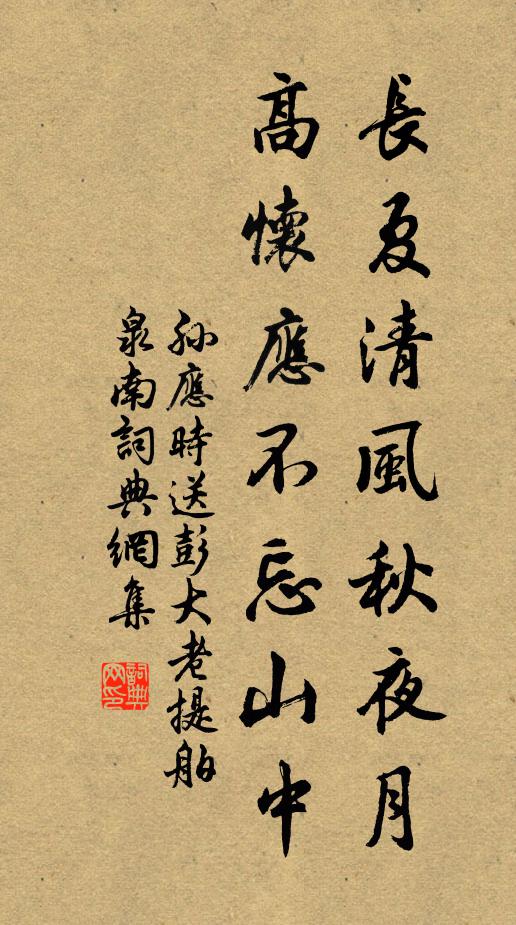 長夏清風秋夜月
高懷應不忘山中
孫應時送彭大老提舶
泉南詞典網集
詞典
网印